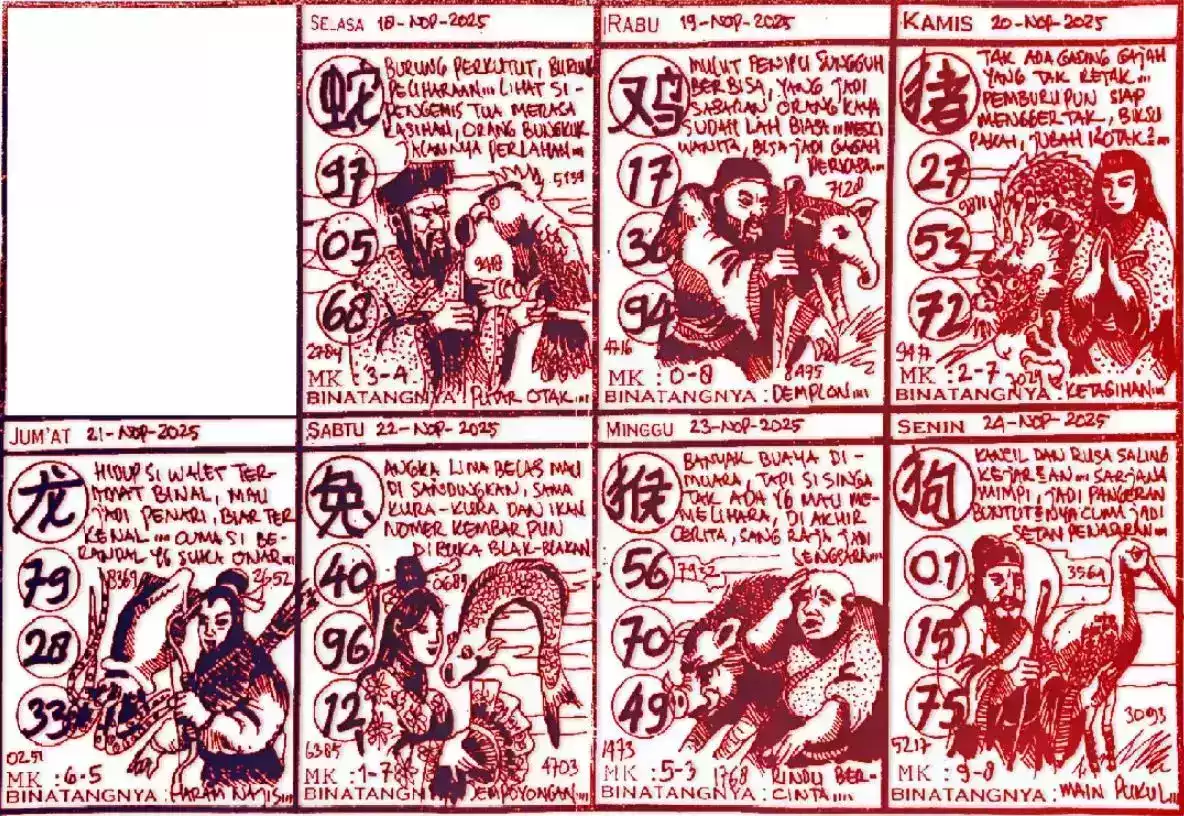 SELASA 18-NOP-2025
蛇
BURUNG PERKUTUT, BURUNG
PELIHARAAN... LIHAT SI-
PENGEMIS TUA MERASA
KASIHAN, ORANG BUNGKUK
JALANNYA PERLAHAN...
97
5139
05
9418
68
2784
MK : 3-4
BINATANGNYA : PUTAR OTAK....
RABU 19-NOP-2025
鸡
MULUT PENIPU SUNGGUH
BERBISA, YANG JADI
SASARAN ORANG KAYA
SUDAH LAH BIASA... MESKI
WANITA, BISA JADI GAGAH
PERKASA...
17
7128
36
94
4716
8495
MK : 0-8
BINATANGNYA : DEMPLON....
KAMIS 20-NOP-2025
猪
TAK ADA GADING GAJAH
YANG TAK RETAK...
PEMBURUPUN SIAP
MENGGERTAK, BIKSU
PAKAI, JUBAH KOTAK2...
27
53
72
MK : 2-7
BINATANGNYA : KETAGIHAN...
JUM'AT 21-NOP-2025
龙
HIDUP SI WALET TER-
AMAT BINAL, MAU
JADI PENARI, BIAR TER
KENAL... CUMA SI BE-
RANDAL YG SUKA ONAR...
79
8369
2652
28
33
0251
MK : 6-5
BINATANGNYA : HARAM NAJIS....
SABTU 22-NOP-2025
兔
ANGKA LIMA BELAS MAU
DI SANDINGKAN, SAMA
KURA-KURA DAN IKAN
NOMER KEMBAR PUN
DIBUKA BLAK-BLAKAN
40
0689
96
12
6385
4703
MK : 1-7
BINATANGNYA : SEMPOYONGAN....
MINGGU 23-NOP-2025
猴
BANYAK BUAYA DI-
MUARA, TAPI SI SINGA
TAK ADA YG MAU ME-
MELIHARA, DI AKHIR
CERITA, SANG RAJA JADI
SENGSARA...
56
7932
70
49
1473
MK : 5-3
1768
BINATANGNYA : RINDU BER-
CINTA....
SENIN 24-NOP-2025
狗
KANCIL DAN RUSA SALING
KEJAR2AN... SARJANA
MIMPI, JADI PANGERAN
BUNTUT2NYA CUMA JADI
SETAN PENASARAN...
01
3564
15
75
3093
5217
MK : 9-8
BINATANGNYA : MAIN PUKUL...